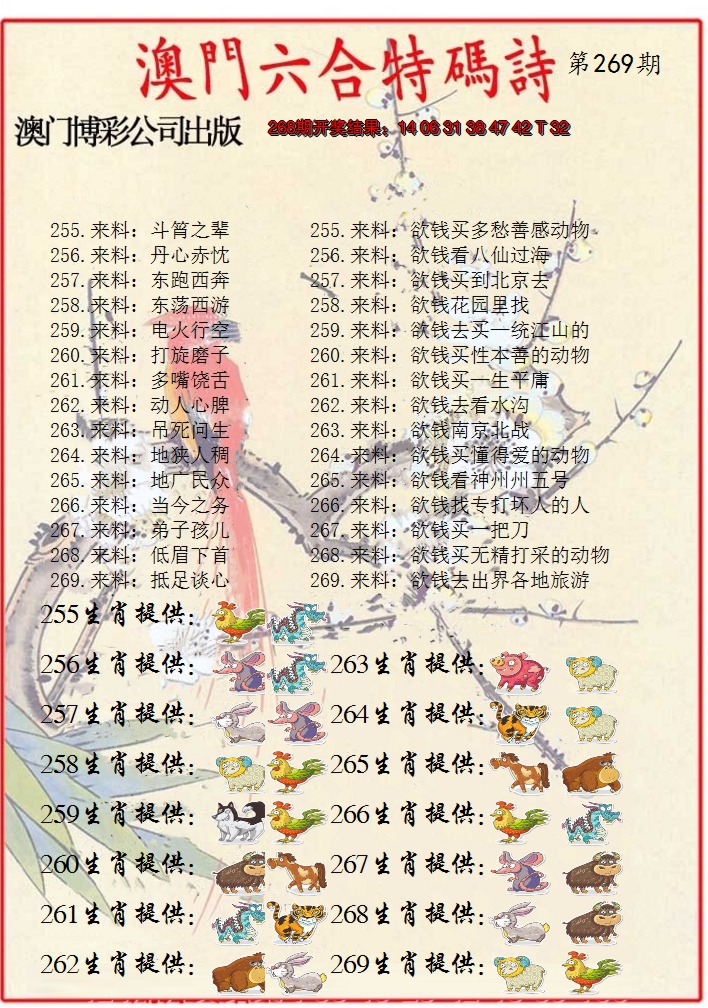 澳門六合特碼詩 第269期
澳门博彩公司出版 268期开奖结果：14 06 31 38 47 42 T 32
255.来料：斗筲之辈 255.来料：欲钱买多愁善感动物
256.来料：丹心赤忱 256.来料：欲钱看八仙过海
257.来料：东跑西奔 257.来料：欲钱买到北京去
258.来料：东荡西游 258.来料：欲钱花园里找
259.来料：电火行空 259.来料：欲钱去买一统江山的
260.来料：打旋磨子 260.来料：欲钱买性本善的动物
261.来料：多嘴饶舌 261.来料：欲钱买一生平庸
262.来料：动人心脾 262.来料：欲钱去看水沟
263.来料：吊死问生 263.来料：欲钱南京北战
264.来料：地狭人稠 264.来料：欲钱买懂得爱的动物
265.来料：地广民众 265.来料：欲钱看神州州五号
266.来料：当今之务 266.来料：欲钱找专打坏人的人
267.来料：弟子孩儿 267.来料：欲钱买一把刀
268.来料：低眉下首 268.来料：欲钱买无精打采的动物
269.来料：抵足谈心 269.来料：欲钱去出界各地旅游
255生肖提供：
256生肖提供： 263生肖提供：
257生肖提供： 264生肖提供：
258生肖提供： 265生肖提供：
259生肖提供： 266生肖提供：
260生肖提供： 267生肖提供：
261生肖提供： 268生肖提供：
262生肖提供： 269生肖提供：